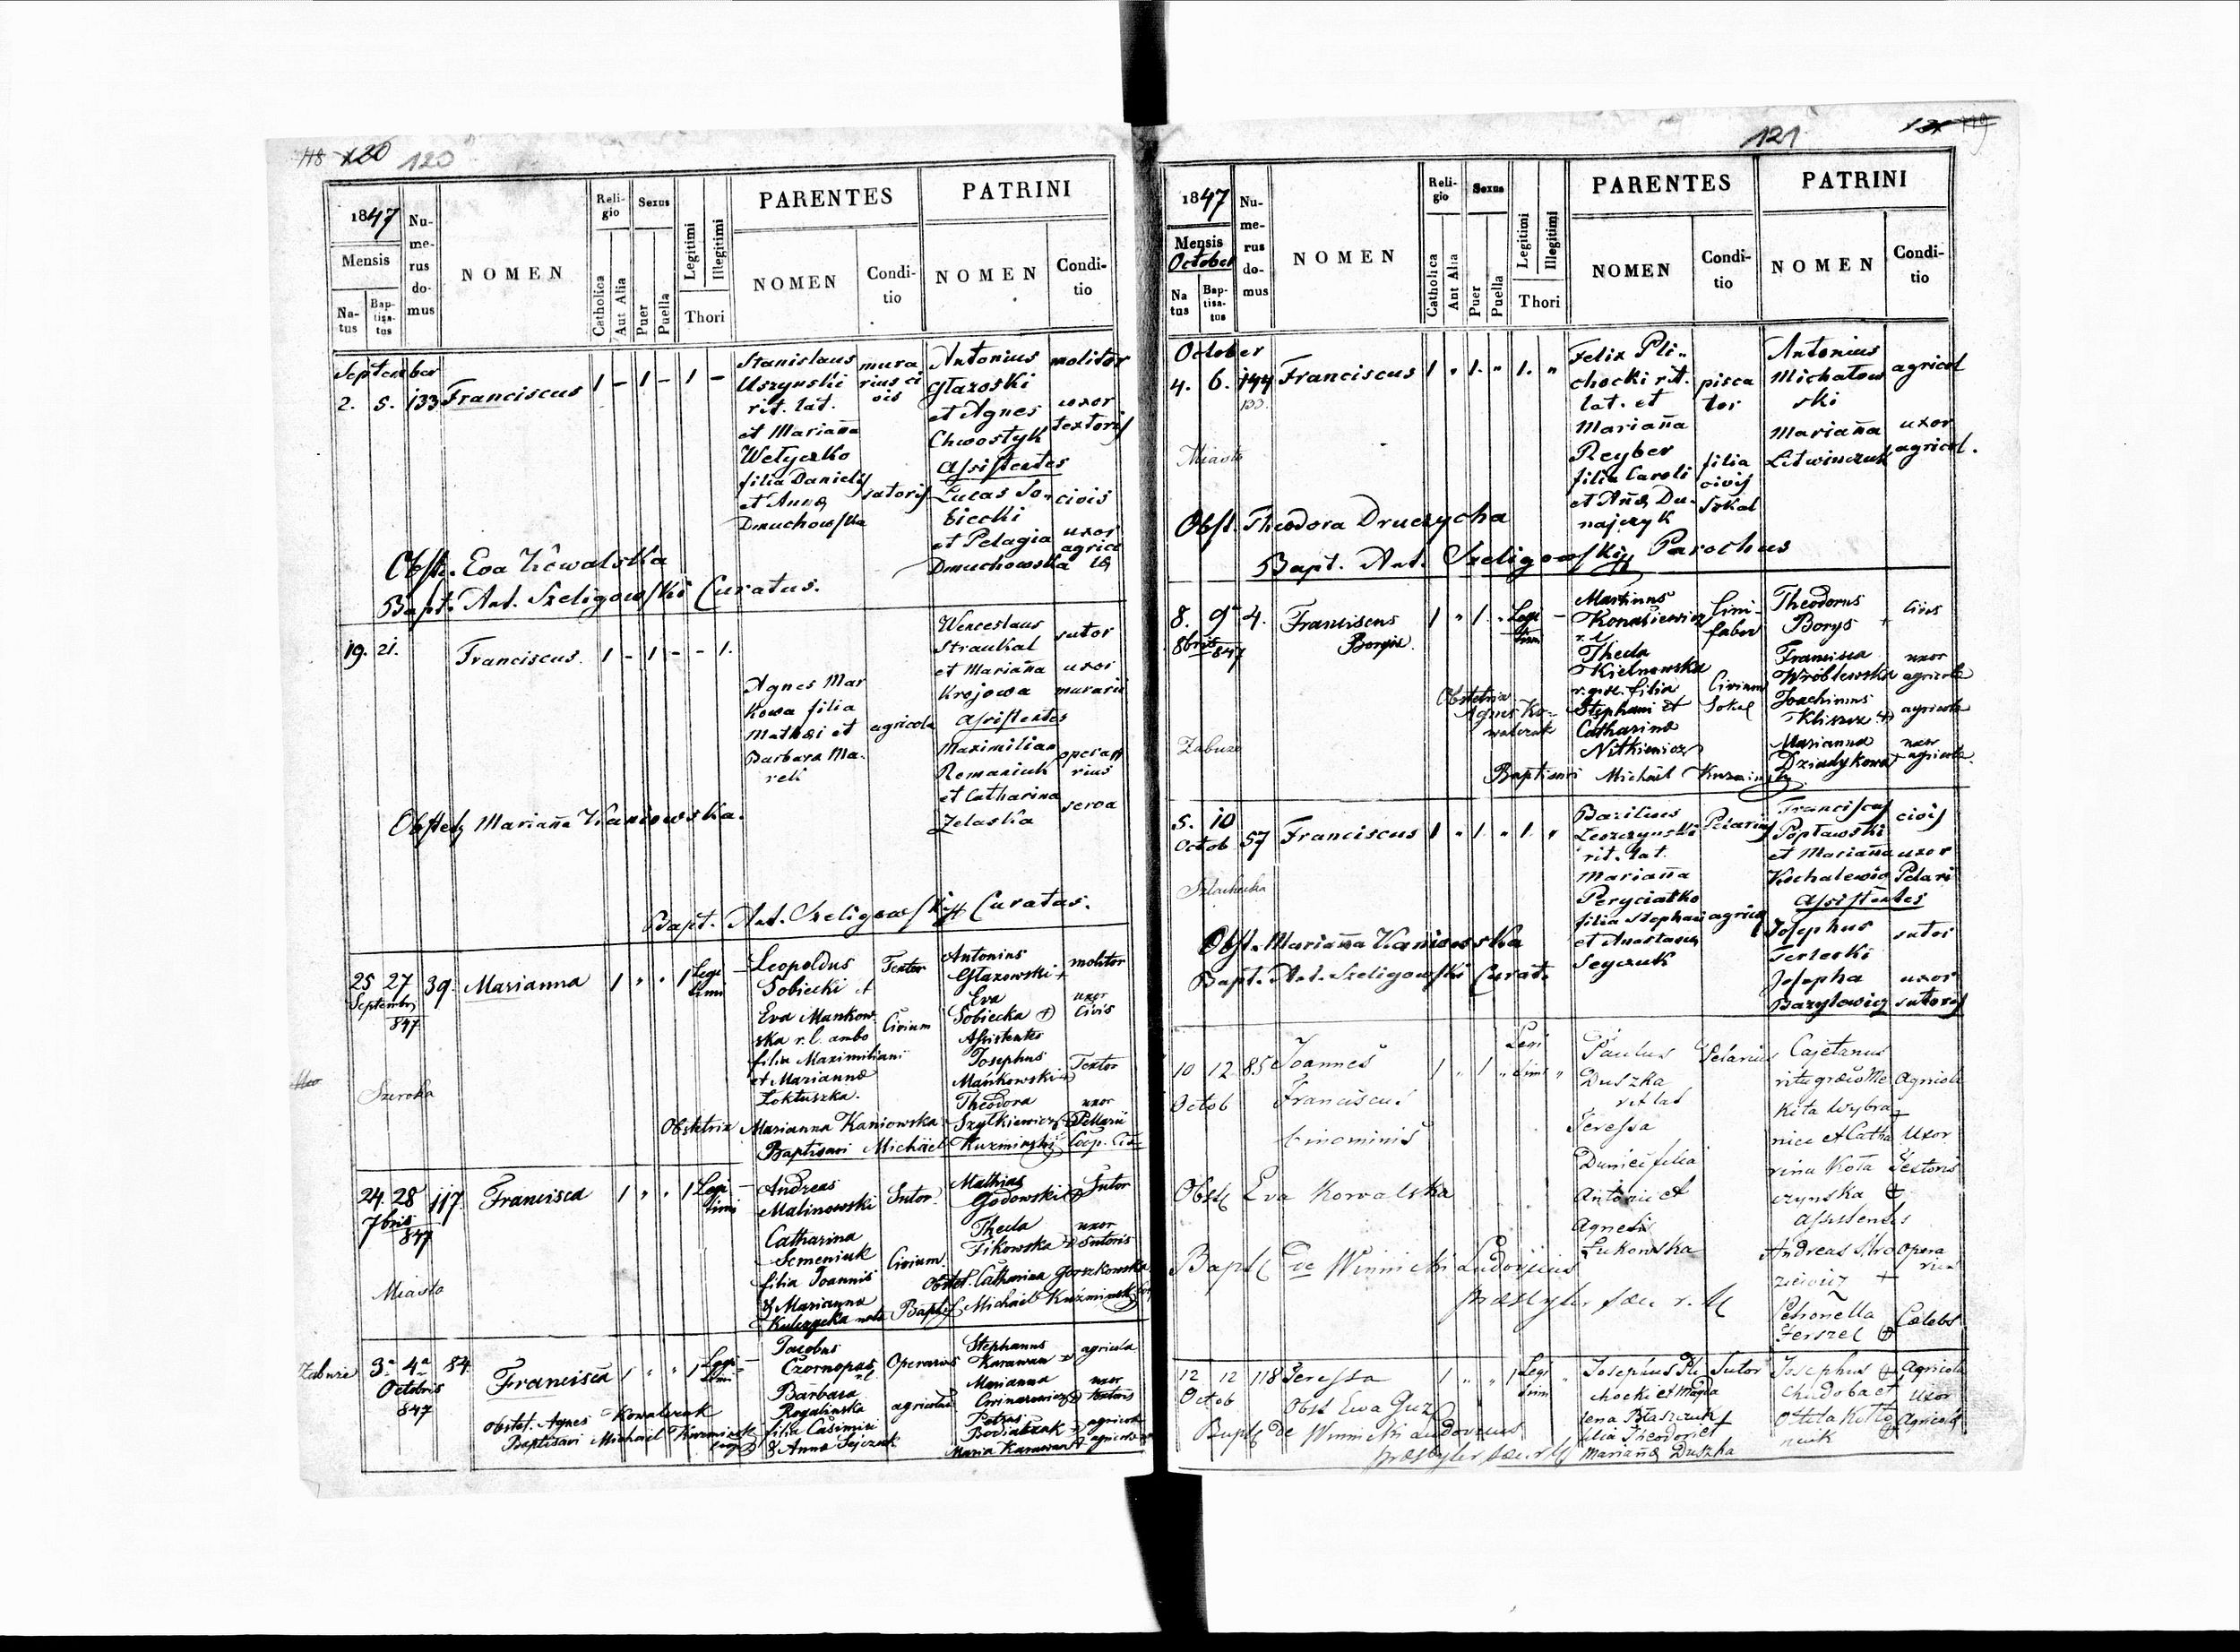 118 120 120
1847
Mensis
Na-
tus
Bap-
tisa-
tus
Nu-
me-
rus
do-
mus
NOMEN
Reli-
gio
Catholica
Aut Alia
Sexus
Puer
Puella
Legitimi
Illegitimi
Thori
PARENTES
NOMEN
Condi-
tio
PATRINI
NOMEN
Condi-
tio
September
2. 5. 133 Franciscus 1 - 1 - 1 -
Stanislaus
Uszynski
rit. lat.
et Mariana
Wetyczko
filia Danielis
et Anna
Dmuchowska
mura
rius ci
vis
satoris
Antonius
Glazoski
et Agnes
Chwostyk
Assistentes
Lucas So-
biecki
et Pelagia
Dmuchowska
molitor
uxor
textoris
civis
uxor
agrico
la
Obste. Eva Kowalska
Bapt. Ant. Szeligowski Curatus.
19. 21. Franciscus. 1 - 1 - - 1.
Agnes Mar
kowa filia
Mathæi et
Barbara Ma-
reli
agricola
Wenceslaus
Straukal
et Mariana
Krojowa
Assistentes
Maximilian
Romaniuk
et Catharina
Zelaska
sutor
uxor
murarii
opera
rius
serva
Obstetz Mariana Kaniowska.
Bapt. Ant. Szeligowski Curatus.
25 27 39. Marianna 1 " " 1 Legi
timi
Septembr
847
Szeroka
Leopoldus
Sobiecki et
Eva Mankow-
ska r. l. ambo
filia Maximiliani
et Marianna
Loktuszka.
Textor
Civium
Antonius
Glazowski +
Eva
Sobiecka +
Assistentes
Josephus
Mańkowski +
Theodora
Szytkiewicz
molitor
uxor
Civis
Textor
uxor
Pellarii
Obstetrix Marianna Kaniowska
Baptisavi Michäel Kuzminski Coop.
24. 28 117. Francisca 1 " " 1 Legi
timi
7bris
847
Miasto
Andreas
Malinowski
Catharina
Semeniuk
filia Joannis
& Marianna
Kulczycka nata
Sutor
Civium
Mathias
Godowski
Thecla
Fikowska
Sutor
uxor
Sutoris
Obstet. Catharina Gorzkowska
Bapt. Michäel Kuzminski
Zabuże 3a 4a 84. Francisca 1 " " 1 Legi
timi
Octobris
847
Jacobus
Czornopas
Barbara
Rogalinska
filia Casimiri
& Anna Sejczuk
Operarius
agricola
Stephanus
Karawan
Marianna
Petrus
Maria Karawan
agricola
uxor
textoris
agricola
Obstet. Agnes Kowalczuk
Baptisavi Michäel Kuzminski
121 119
1847
Mensis
October
Na
tus
Bap-
tisa-
tus
Nu-
me-
rus
do-
mus
NOMEN
Reli-
gio
Catholica
Aut Alia
Sexus
Puer
Puella
Legitimi
Illegitimi
Thori
PARENTES
NOMEN
Condi-
tio
PATRINI
NOMEN
Condi-
tio
October
4. 6. 144 Franciscus 1 " 1. " 1. "
133.
Miasto
Felix Pli-
chocki rit.
lat. et
Mariana
Reyber
filia Caroli
et Anæ Du-
najczyk
pisca
tor
filia
civis
Sokal
Antonius
Michalow
ski
Mariana
Litwinczuk
agricol
uxor
agricol.
Obst. Theodora Druczycha
Bapt. Ant. Szeligowski Parochus
8. 9a 4. Franciscus 1 " 1 " Legi
timi
8bris 847 Borgia.
Zabuże
Martinus
Konasiewicz
r. l.
Thecla
Kielnowska
r. gr. filia
Stephani et
Catharina
Nitkiewicz
Lini-
faber
Civium
Sokal
Theodorus
Borys
Francisca
Wróblewska
Joachimus
Kliszcz
Marianna
Dziadykowa
Civis
uxor
agricola
agricola
uxor
agricola
Obstetrix
Agnes Ko-
walczuk
Baptisavi Michäel Kuzminski
5. 10
Octob 57 Franciscus 1 " 1. " 1. "
Szlachecka
Basilius
Leszczynski
rit. lat.
Mariana
Peryciatko
filia Stephani
et Anastasia
Seyczuk
Pelarius
agricol
Franciscus
Poplawski
et Mariana
Kochalewicz
Assistentes
Josephus
Terlecki
Josepha
Bazylowicz
civis
uxor
Pelari
sutor
uxor
sutoris
Obst. Mariana Kaniowska
Bapt. Ant. Szeligowski Curat.
10 12. 85 Joannes 1 " 1 " Legi
timi "
Octob Franciscus
binominis
Paulus
Duszka
rit lat
Teressa
Duniec filia
Antonii et
Agnetis
Lukowska
Pelarius
Cajetanus
ritu græco Me
Kita Wybra
nice et Catha
rina Kota
czynska
Assistentes
Andreas Mro
ziewicz +
Petronella
Ferszel
Agricola
Uxor
Textoris
Opera
rius
Cælebs
Obst Eva Kowalska
Bapt de Winnicki Ludovicus
præsbyter sæc r. l
12 12 118 Teressa 1 " " 1 Legi
timi "
Octob Obst Ewa Guz
Bapt de Winnicki Ludovicus
præsbyter sæc. r l
Josephus Pli
chocki et Magda
lena Błaszczuk
filia Theodori et
Mariana Duszka
Sutor
Josephus
Chudoba et
Otilia Kotto
niuk
Agricola
Uxor
Agricola